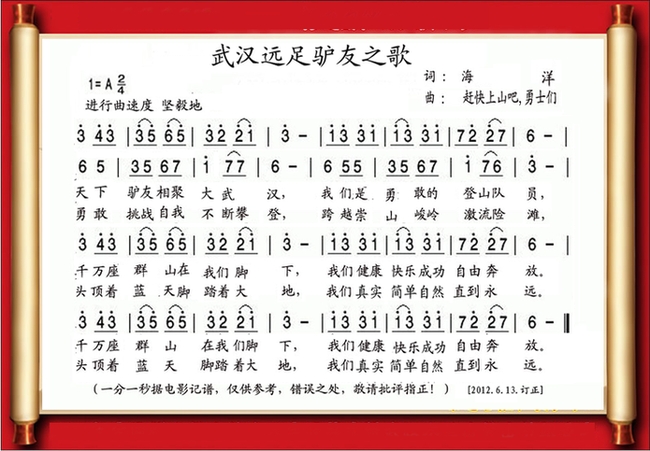 武汉远足驴友之歌
1=A 2/4
词： 海 洋
进行曲速度 坚毅地
曲： 赶快上山吧,勇士们
3 43 | 35 65 | 32 21 | 3 - | 13 31 | 13 31 | 72 27 | 6 - |
6 5 | 35 67 | 1 77 | 6 - | 6 55 | 35 35 | 1 76 | 3 - |
天下 驴友相聚 大武 汉， 我们是 勇敢的 登山队 员，
勇敢 挑战自我 不断攀 登， 跨越崇 山 峻岭 激流险 滩，
3 43 | 35 65 | 32 21 | 3 - | 13 31 | 13 31 | 72 27 | 6 - |
千万座 群 山在 我们脚 下， 我们健康 快乐成功 自由奔 放。
头顶着 蓝 天脚 踏着大 地， 我们真实 简单自然 直到永 远。
3 43 | 35 65 | 32 21 | 3 - | 13 31 | 13 31 | 72 27 | 6 - ‖
千万座 群 山 在我们脚 下， 我们健康 快乐成功 自由奔 放。
头顶着 蓝 天 脚踏着大 地， 我们真实 简单自然 直到永 远。
（一分一秒据电影记谱，仅供参考，错误之处，敬请批评指正！） [2012.6.13.订正]